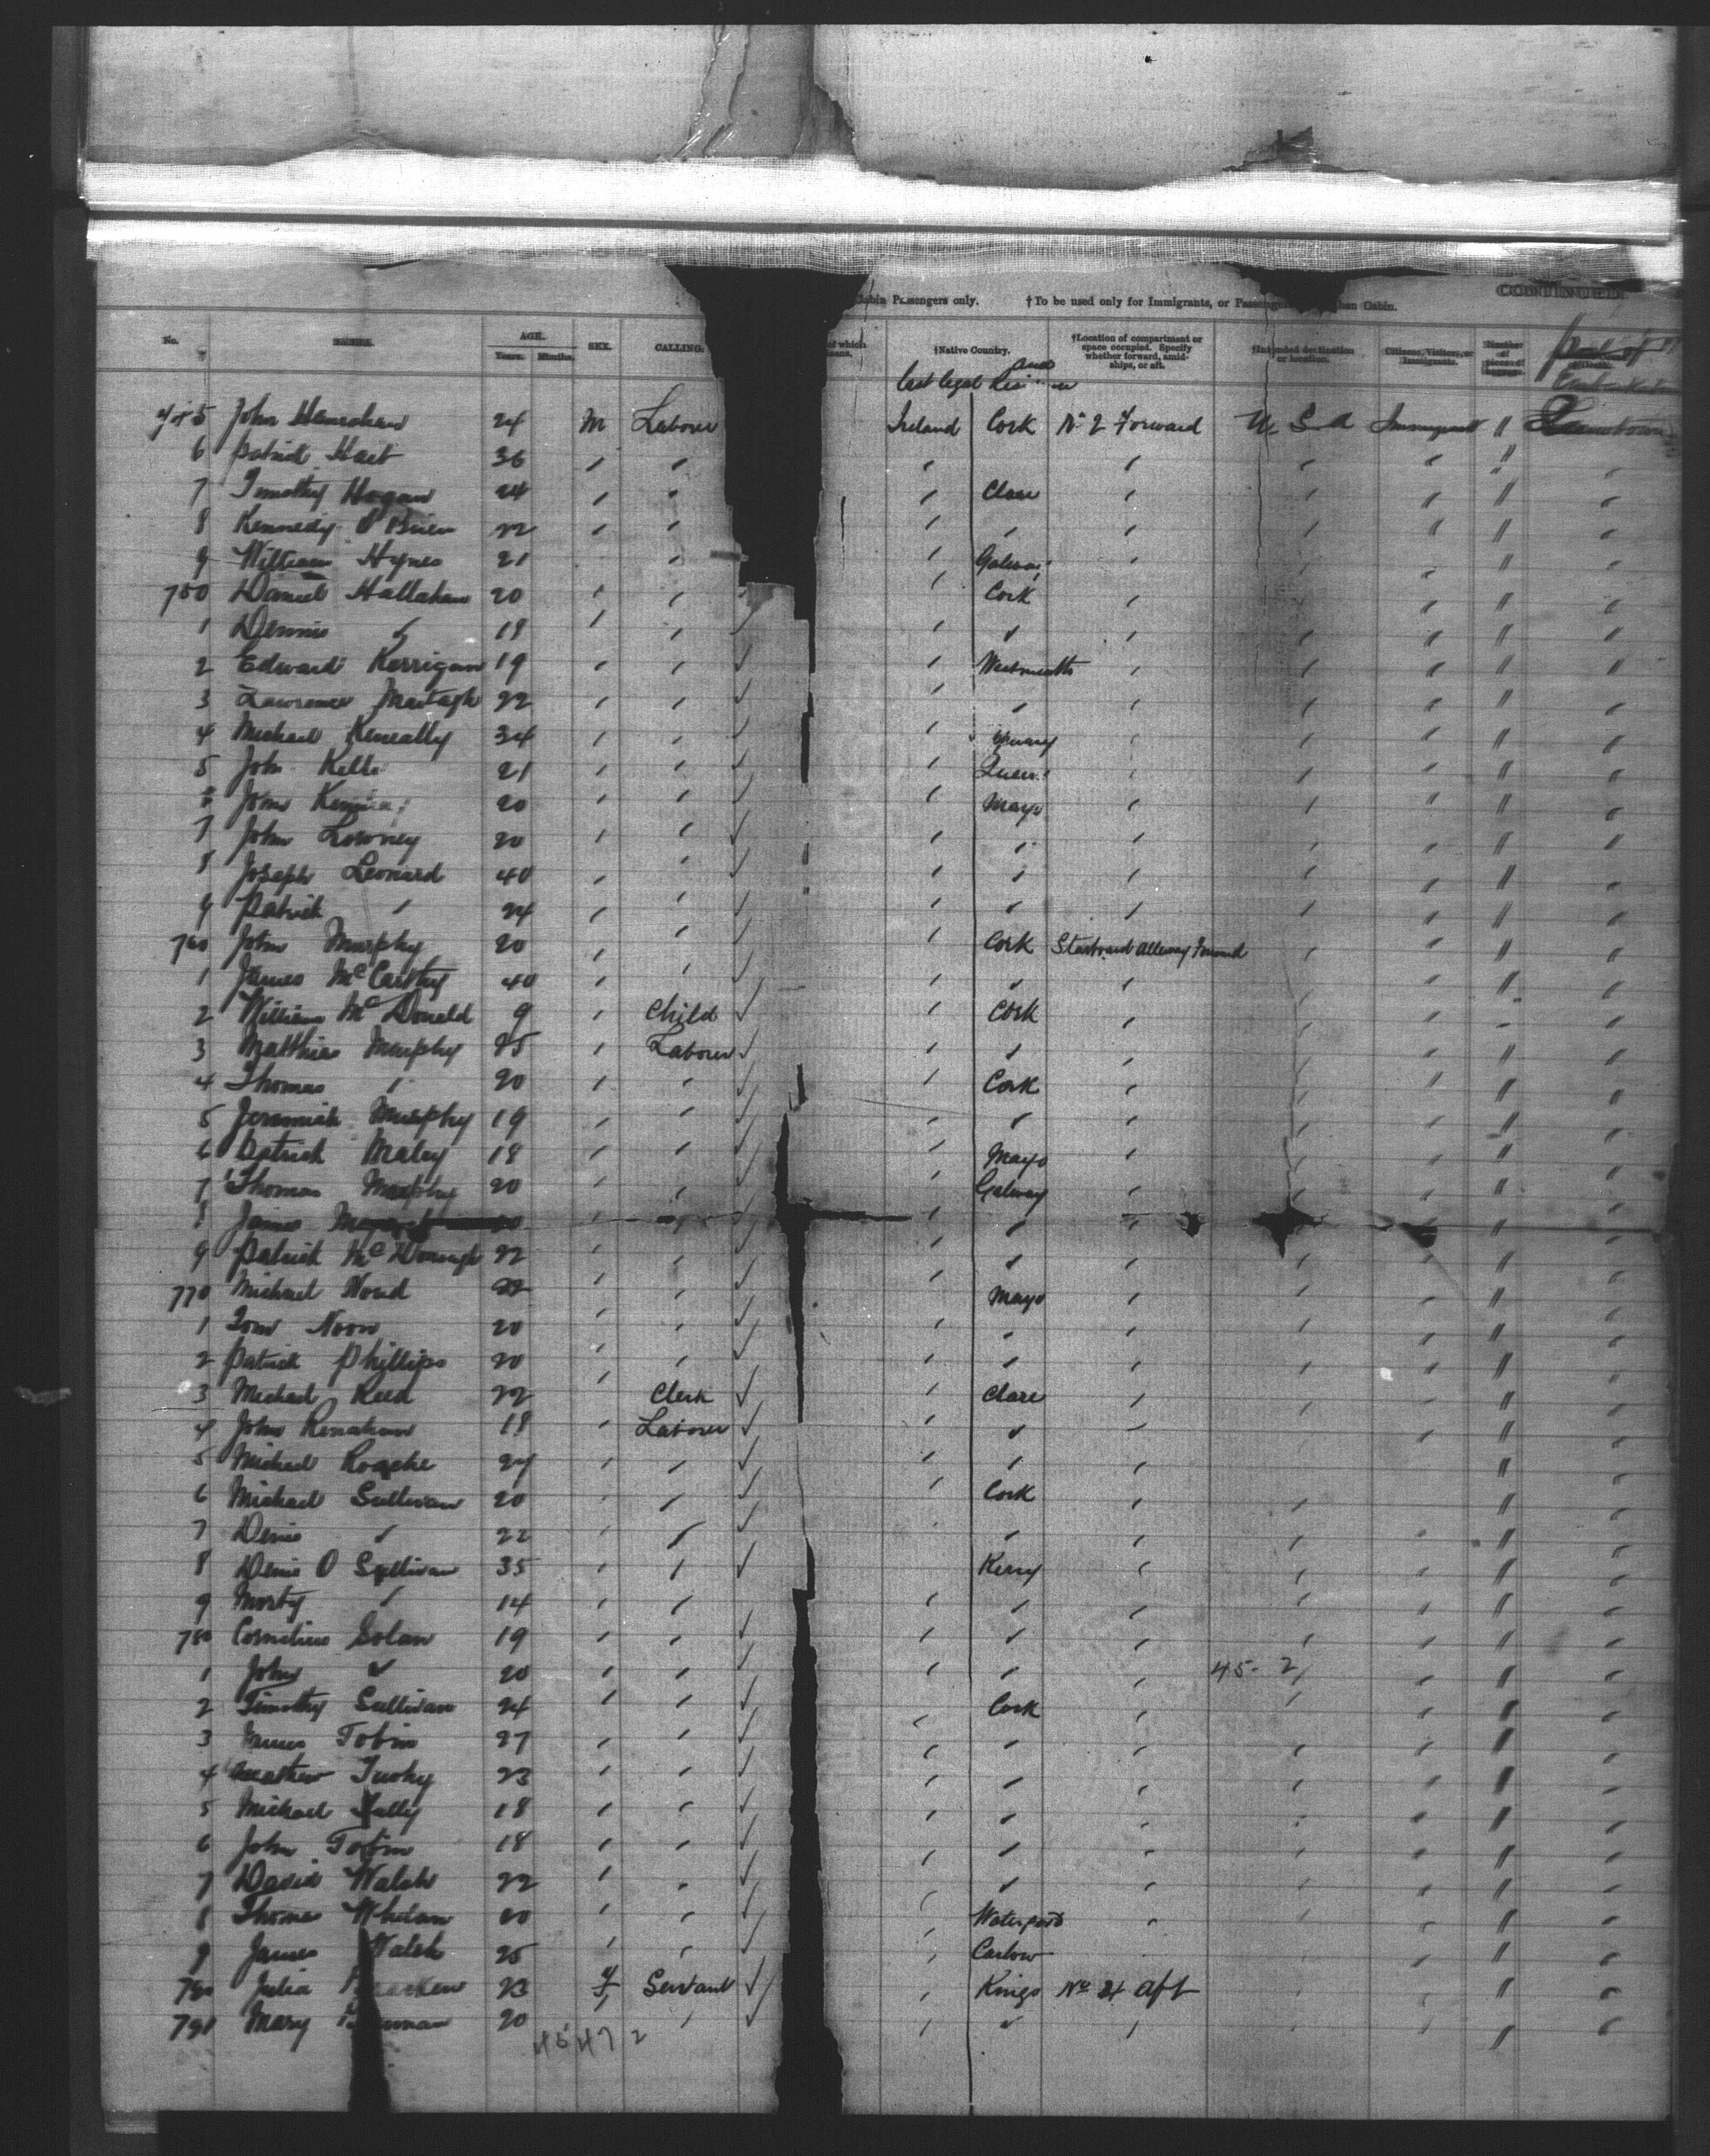 CONTINUED
Cabin Passengers only. †To be used only for Immigrants, or Passengers than Cabin.
No. NAMES. AGE. Years. Months. SEX. CALLING. of which †Native Country. †Location of compartment or space occupied. Specify whether forward, amidships, or aft. †Intended destination or location. Citizens, Visitors, or Immigrants. Number of pieces of luggage.
and
last legal
5 John 24 M Laborer Ireland Cork No 2 Forward U. S. A Immigrant " Queenstown
6 Patrick Hart 36 " " " " " " " "
7 Timothy Hogan 24 " " " Clare " " " " "
8 Kennedy O'Brien 22 " " " " " " " " "
9 William Hynes 21 " " Galway " " " " "
750 Daniel Hallahan 20 " " " Cork " " " " "
1 Dennis " 18 " " " " " " " " "
2 Edward Kerrigan 19 " " " Westmeath " " " " "
3 Lawrence Murtagh 22 " " " " " " " " "
4 Michael Keneally 34 " " " " " " " "
5 John 21 " " " Queens " " " " "
John 20 " " " Mayo " " " " "
7 John Lowney 20 " " " " " " " " "
8 Joseph Leonard 40 " " " " " " " " "
9 Patrick " 24 " " " " " " " " "
760 John Murphy 20 " " " Cork Starboard Alleway Forward " " " "
1 James McCarthy 40 " " " " " " " " "
2 William McDonald 9 " Child " Cork " " " " "
3 Matthias Murphy 25 " Laborer " " " " " " "
4 Thomas " 20 " " " Cork " " " " "
5 Jeremiah Murphy 19 " " " " " " " " "
6 Patrick Maley 18 " " " Mayo " " " " "
7 Thomas Murphy 20 " " " Galway " " " " "
8 James " " " " " " " " "
9 Patrick McDonough 22 " " " " " " " " "
770 Michael 22 " " " Mayo " " " " "
1 Tom Noon 20 " " " " " " " " "
2 Patrick Phillips 20 " " " " " " " " "
3 Michael Reed 22 " Clerk " Clare " " " " "
4 John Renahan 18 " Laborer " " " " " "
5 Michael Roache 24 " " " " " " "
6 Michael Sullivan 20 " " " Cork " " " "
7 Denis " 22 " " " " " " " "
8 Denis O Sullivan 35 " " Kerry " " " " "
9 Morty " 14 " " " " " " " " "
780 Cornelius Solan 19 " " " " " " " " "
1 John " 20 " " " " " 45- 2 " " "
2 Timothy Sullivan 24 " " " Cork " " " " "
3 James Tobin 27 " " " " " " " " "
4 Mathew Tuohy 23 " " " " " " " " "
5 Michael 18 " " " " " " " " "
6 John Tobin 18 " " " " " " " " "
7 David Walsh 22 " " " " " " " " "
8 Thomas Whelan 20 " " " Waterford " " " " "
9 James Walsh 25 " " " Carlow " " "
790 Julia 23 f Servant " Kings No 24 Aft " " " "
791 Mary 20 " " " " " " " " "